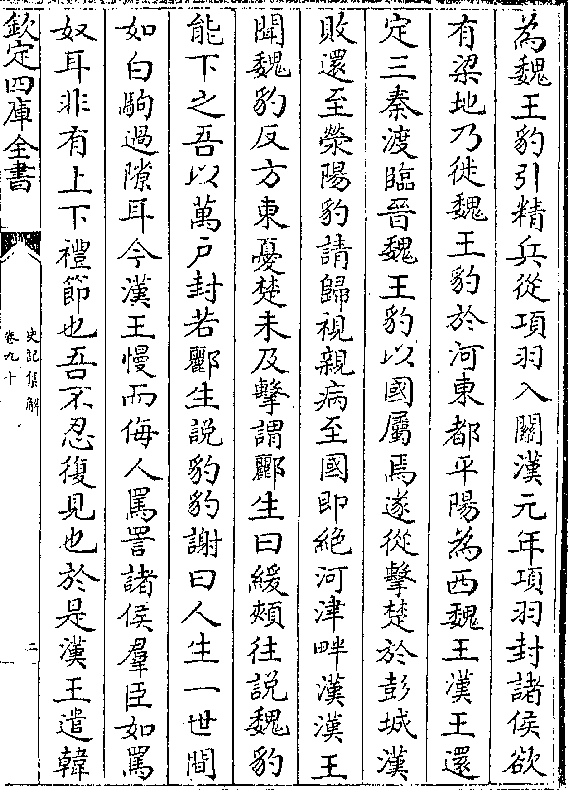 為魏王豹引精兵從項羽入關漢元年項羽封諸侯欲
有梁地乃徙魏王豹於河東都平陽為西魏王漢王還
定三秦渡臨晉魏王豹以國屬焉遂從擊楚於彭城漢
敗還至滎陽豹請歸視親病至國即絕河津畔漢漢王
聞魏豹反方東憂楚未及擊謂酈生曰緩頰往說魏豹
能下之吾以萬户封若酈生說豹豹謝曰人生一世間
如白駒過隙耳今漢王慢而侮人罵詈諸侯羣臣如罵
奴耳非有上下禮節也吾不忍復見也於是漢王遣韓
欽定四庫全書
史記集解
卷九十
二